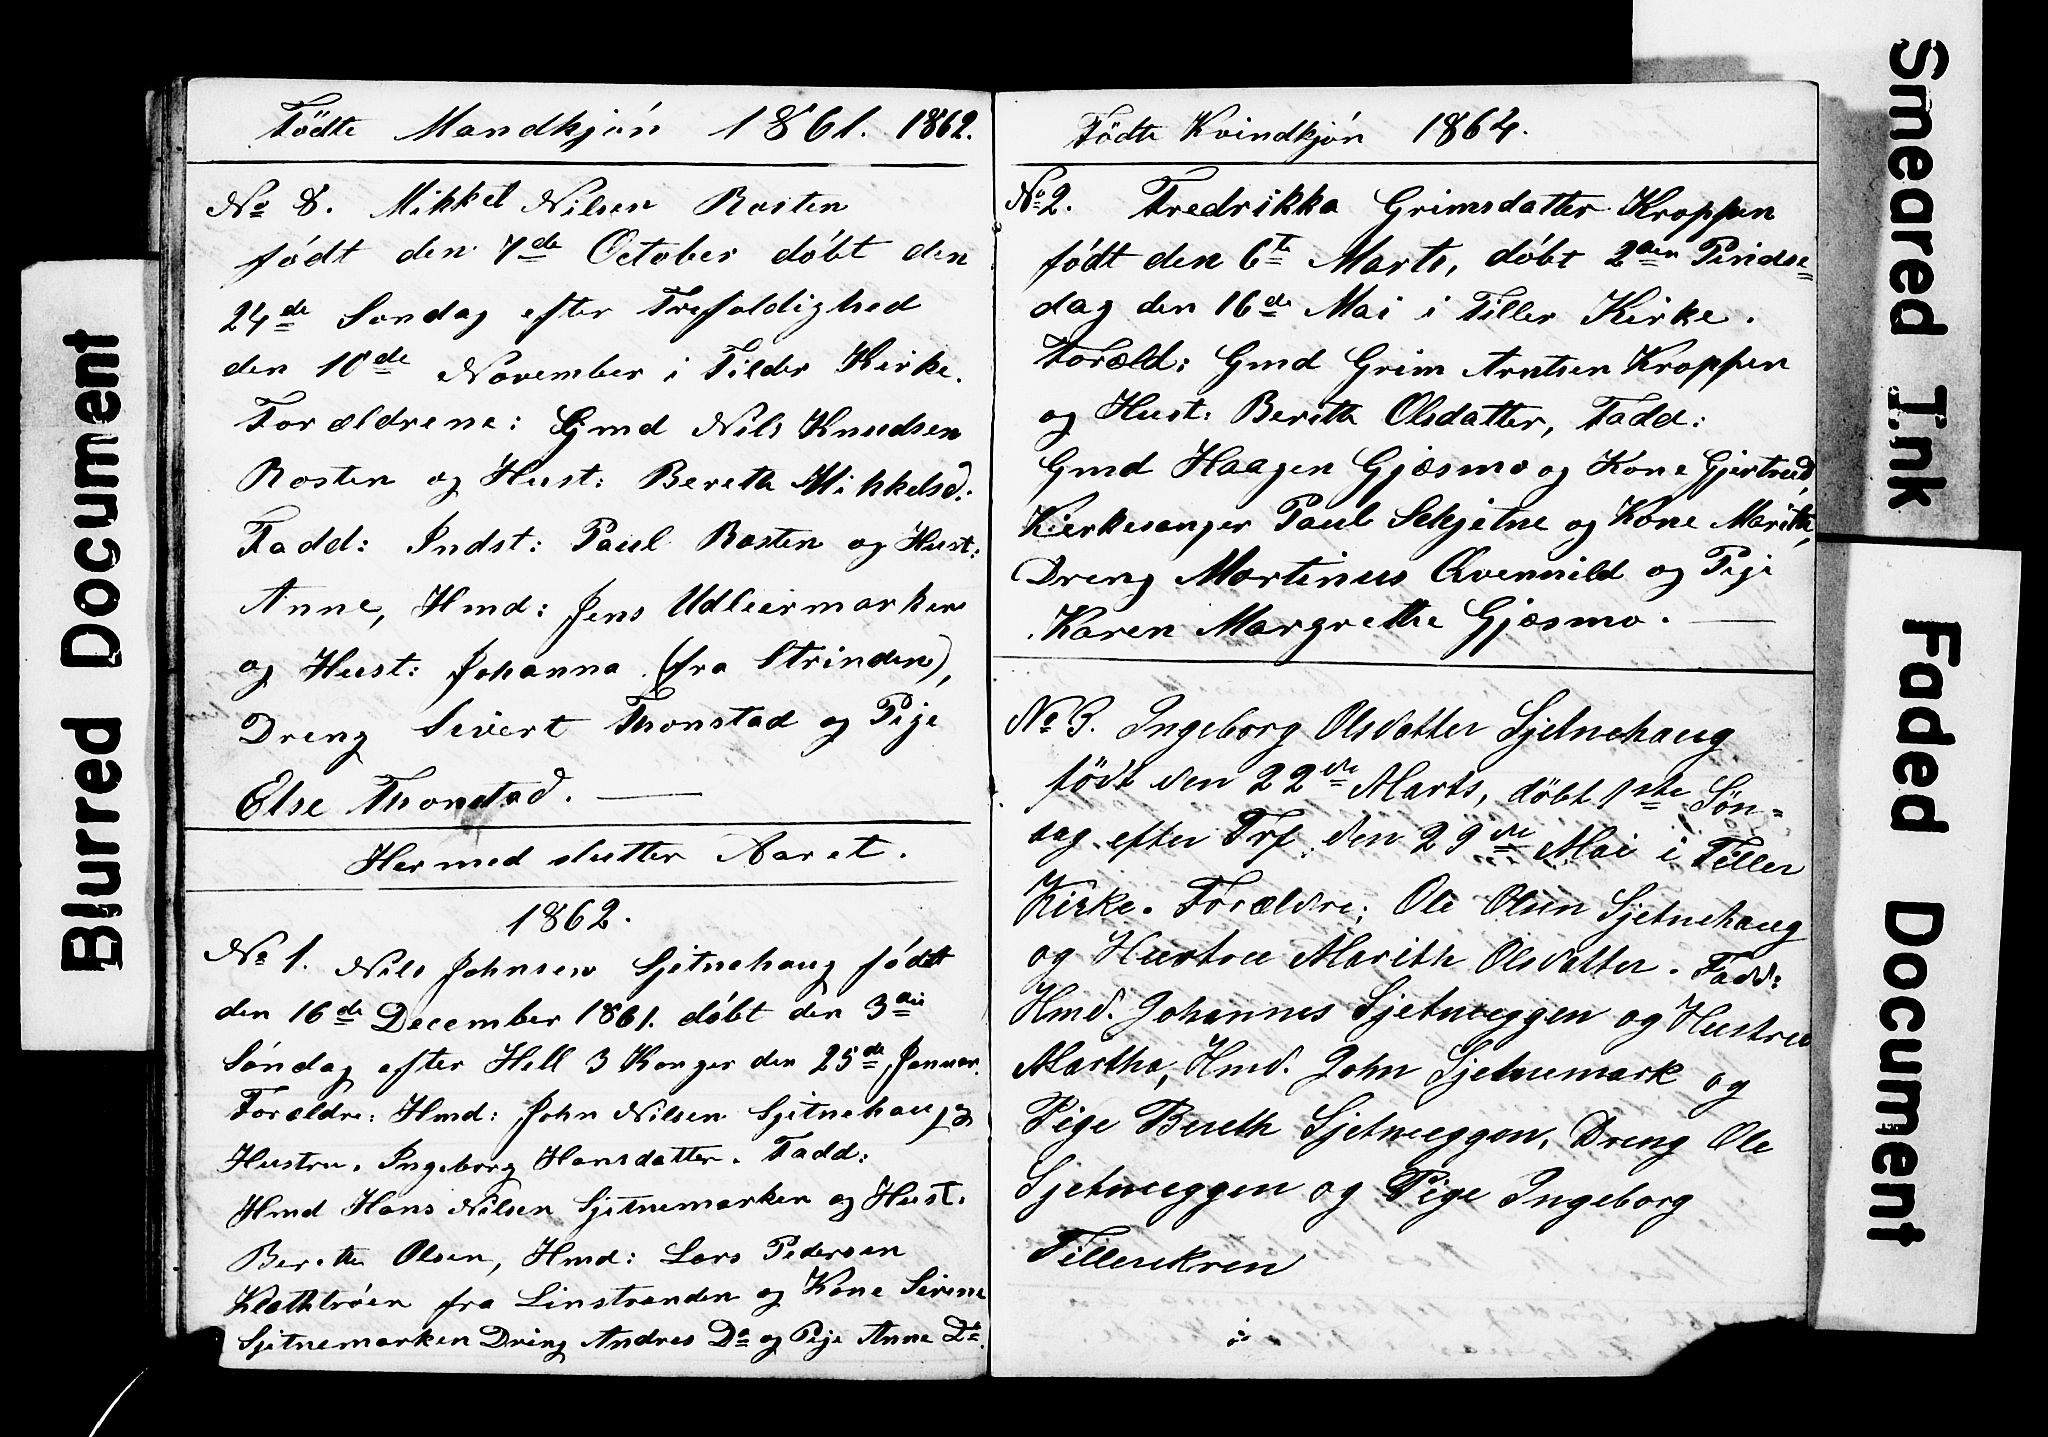 Födte Mandkjón 1861. 1862.
No 8. Mikkel Nilsen Rosten
födt den 7de October döbt den
24de Sondag efter Trefoldighed
den 10de November i Tilder Kirke.
Forældrene: Gmd Nils Knudsen
Rosten og Hust: Bereth Mikkelsd:
Fadd: Indst: Paul Rosten og Hust:
Anne, Hmd: Jens Udleirmarken
og Hust: Johanna (fra Strinden),
Dreng Sivert Thonstad og Pige
Else Thonstad.
Hermed slutter Aaret.
1862.
No 1. Nils Johnsen Sjetnehaug födt
den 16de December 1861. döbt den 3die
Söndag efter Hell 3 Konger den 25de Januar.
Forældre: Hmd: John Nilsen Sjetnehaug og
Hustru. Ingeborg Hansdatter. Fadd:
Hmd Hans Nilsen Sjetnemarken og Hust.
Bereth Olsen, Hmd: Lars Pedersen
Klethtröen fra Leinstranden og Kone Sirene
Sjetnemarken Dreng Andres Do og Pige Anne Do.
Födte Kvindkjön 1864.
No 2. Fredrikka Grimsdatter Kroppen
födt den 6te Marts, döbt 2den Pindse-
dag den 16de Mai i Tiller Kirke.
Foræld: Gmd Grim Arntsen Kroppen
og Hust: Bereth Olsdatter, Fadd:
Gmd Haagen Gjæsmo og Kone Gjertrud,
Kirkesanger Paul Schjetne og Kone Marith,
Dreng Martinus Qvennild og Pige
Karen Margrethe Gjæsmo.
No 3. Ingeborg Olsdatter Sjetnehaug
födt den 22de Marts, döbt 1ste Søn-
dag efter Trf. den 29de Mai i Tiller
Kirke. Forældre; Ole Olsen Sjetnehaug
og Hustru Marith Olsdatter. Fadd:
Hmd. Johannes Sjetneeggen og Hustru
Martha, Hmd. John Sjetnemark og
Pige Bereth Sjetneeggen, Dreng Ole
Sjetneeggen og Pige Ingeborg
Tillerekren
Blurred Document
Smeared Ink
Faded Document